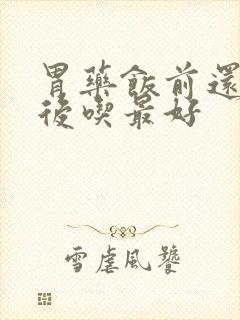 胃藥飯前還
後喫最好
雪虐風饕